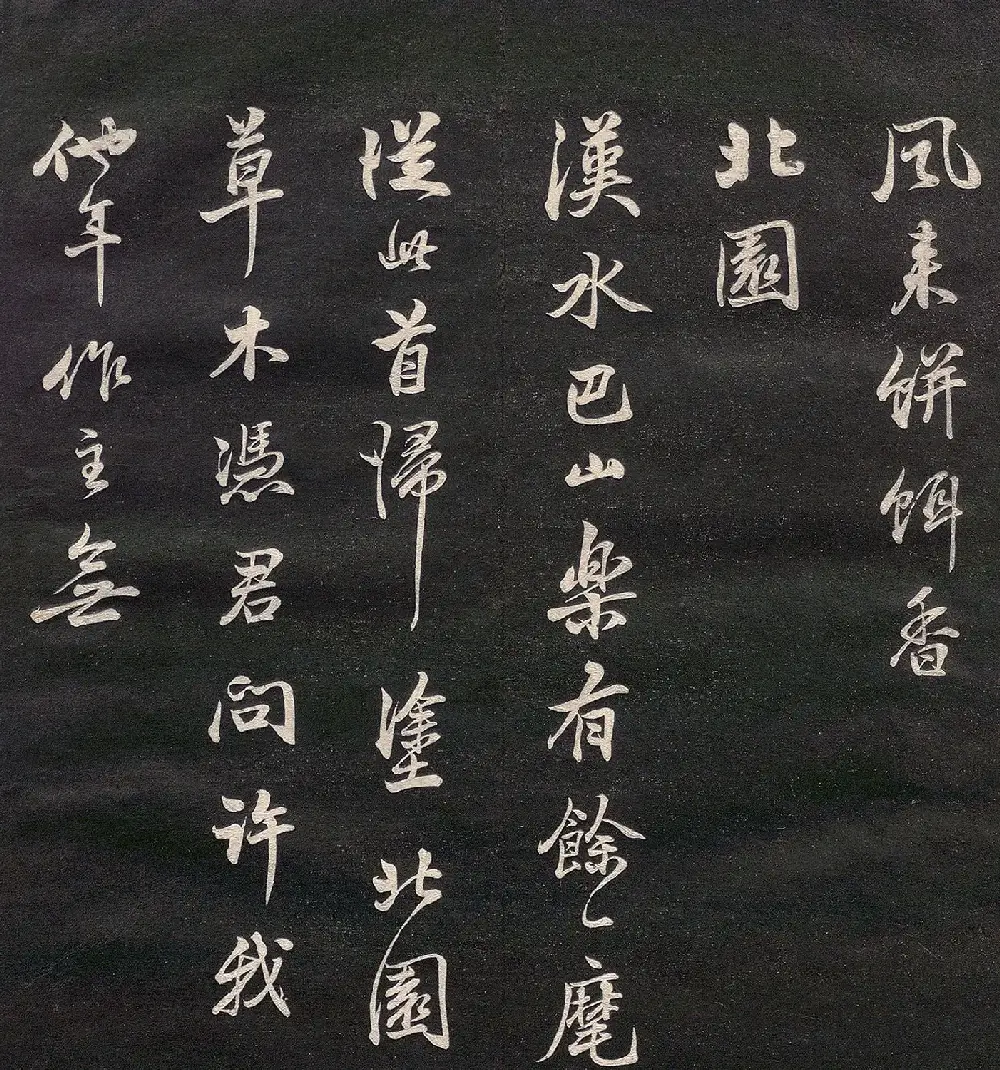 風來餅餌香
北園
漢水巴山樂有餘一麾
從此首歸塗北園
草木憑君問許我
他年作主無